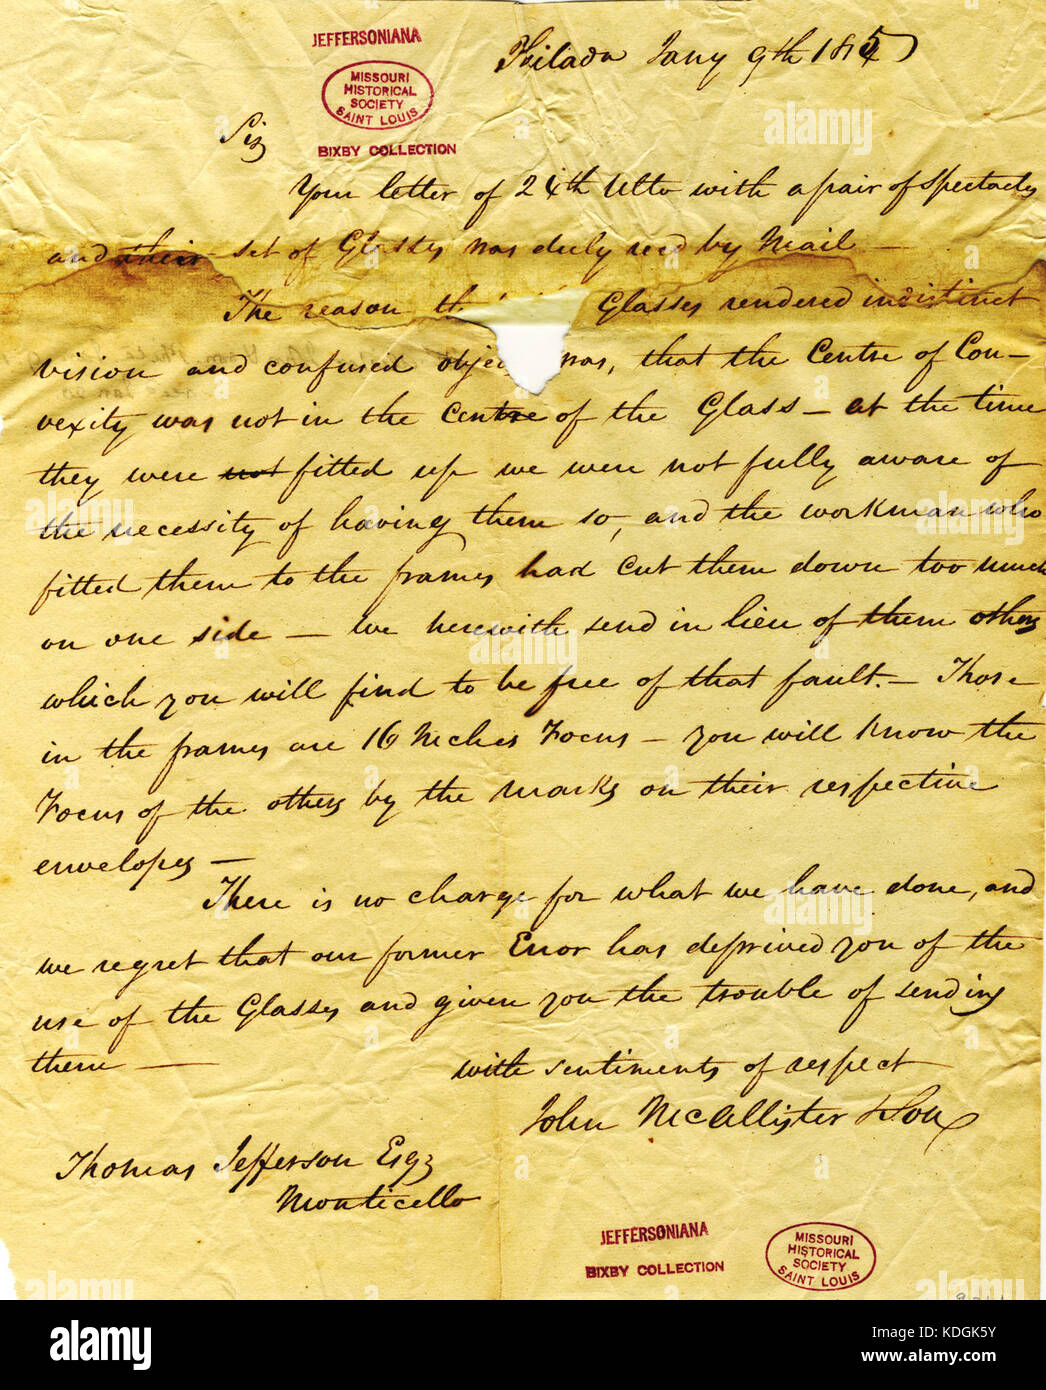 JEFFERSONIANA
MISSOURI
HISTORICAL
SOCIETY
SAINT LOUIS
BIXBY COLLECTION
Philada Jany 9th 1815
Sir
Your letter of 24th Ulto with a pair of Spectacles
and their set of Glasses was duly recd by Mail —
The reason th Glasses rendered indistinct
vision and confused objec was, that the Centre of Con-
vexity was not in the Centre of the Glass — at the time
they were not fitted up we were not fully aware of
the necessity of having them so, and the workman who
fitted them to the frames had cut them down too much
on one side — We herewith send in lieu of them others
which you will find to be free of that fault. — Those
in the frames are 16 Inches Focus — you will know the
Focus of the others by the marks on their respective
envelopes —
There is no charge for what we have done, and
we regret that our former Error has deprived you of the
use of the Glasses and given you the trouble of sending
them —
with sentiments of respect
John McAllister & Son
Thomas Jefferson Esqr
Monticello
JEFFERSONIANA
BIXBY COLLECTION
MISSOURI
HISTORICAL
SOCIETY
SAINT LOUIS
alamy
alamy
Image ID: KDGK5Y
www.alamy.com